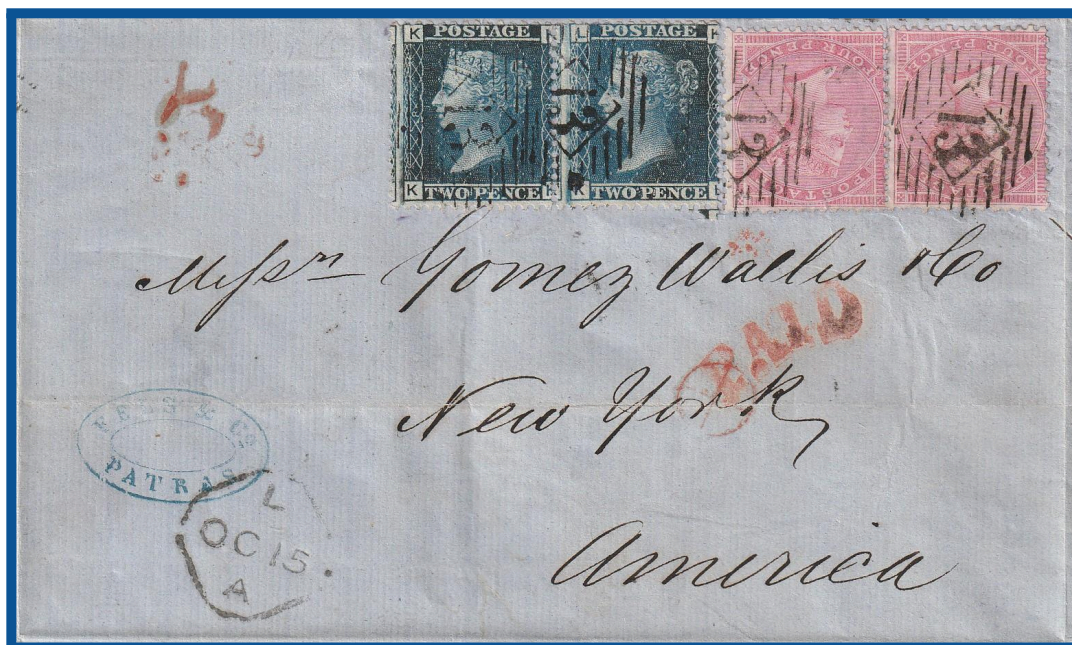 K POSTAGE L POSTAGE
K TWO PENCE K TWO PENCE L
FOUR PENCE POSTAGE FOUR PENCE
13 13 13 13
Messrs Gomez Wallis & Co
PAID
New York
America
& Co
PATRAS
L
OC 15
A